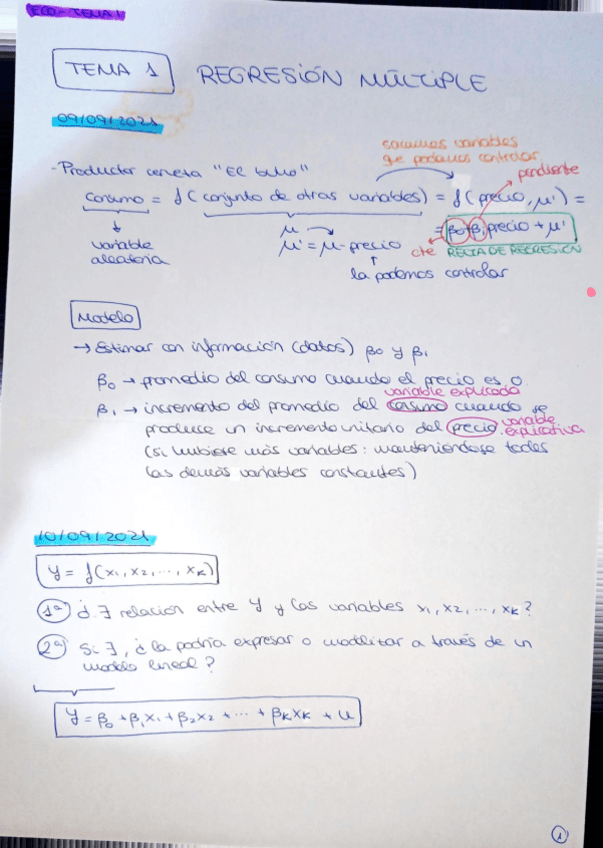 ECO - TEMA 1
TEMA 1 REGRESIÓN MÚLTIPLE
09/09/2021
sacamos variables
que podamos controlar
- Productor cerveza "El búho"
pendiente
Consumo = f (conjunto de otras variables) = f (precio, μ') =
= β0 + β1 precio + μ'
variable
aleatoria
μ
μ' = μ - precio
cte RECTA DE REGRESIÓN
la podemos controlar
Modelo
→ Estimar con información (datos) β0 y β1
β0 → promedio del consumo cuando el precio es 0
variable explicada
β1 → incremento del promedio del consumo cuando se
produce un incremento unitario del precio variable explicativa
(si hubiese más variables: manteniéndose todas
las demás variables constantes)
10/09/2021
y = f(x1, x2, ..., xK)
1º) ¿∃ relación entre y y las variables x1, x2, ..., xK?
2º) Si ∃, ¿la podría expresar o modelizar a través de un
modelo lineal?
y = β0 + β1x1 + β2x2 + ... + βKxK + u
1